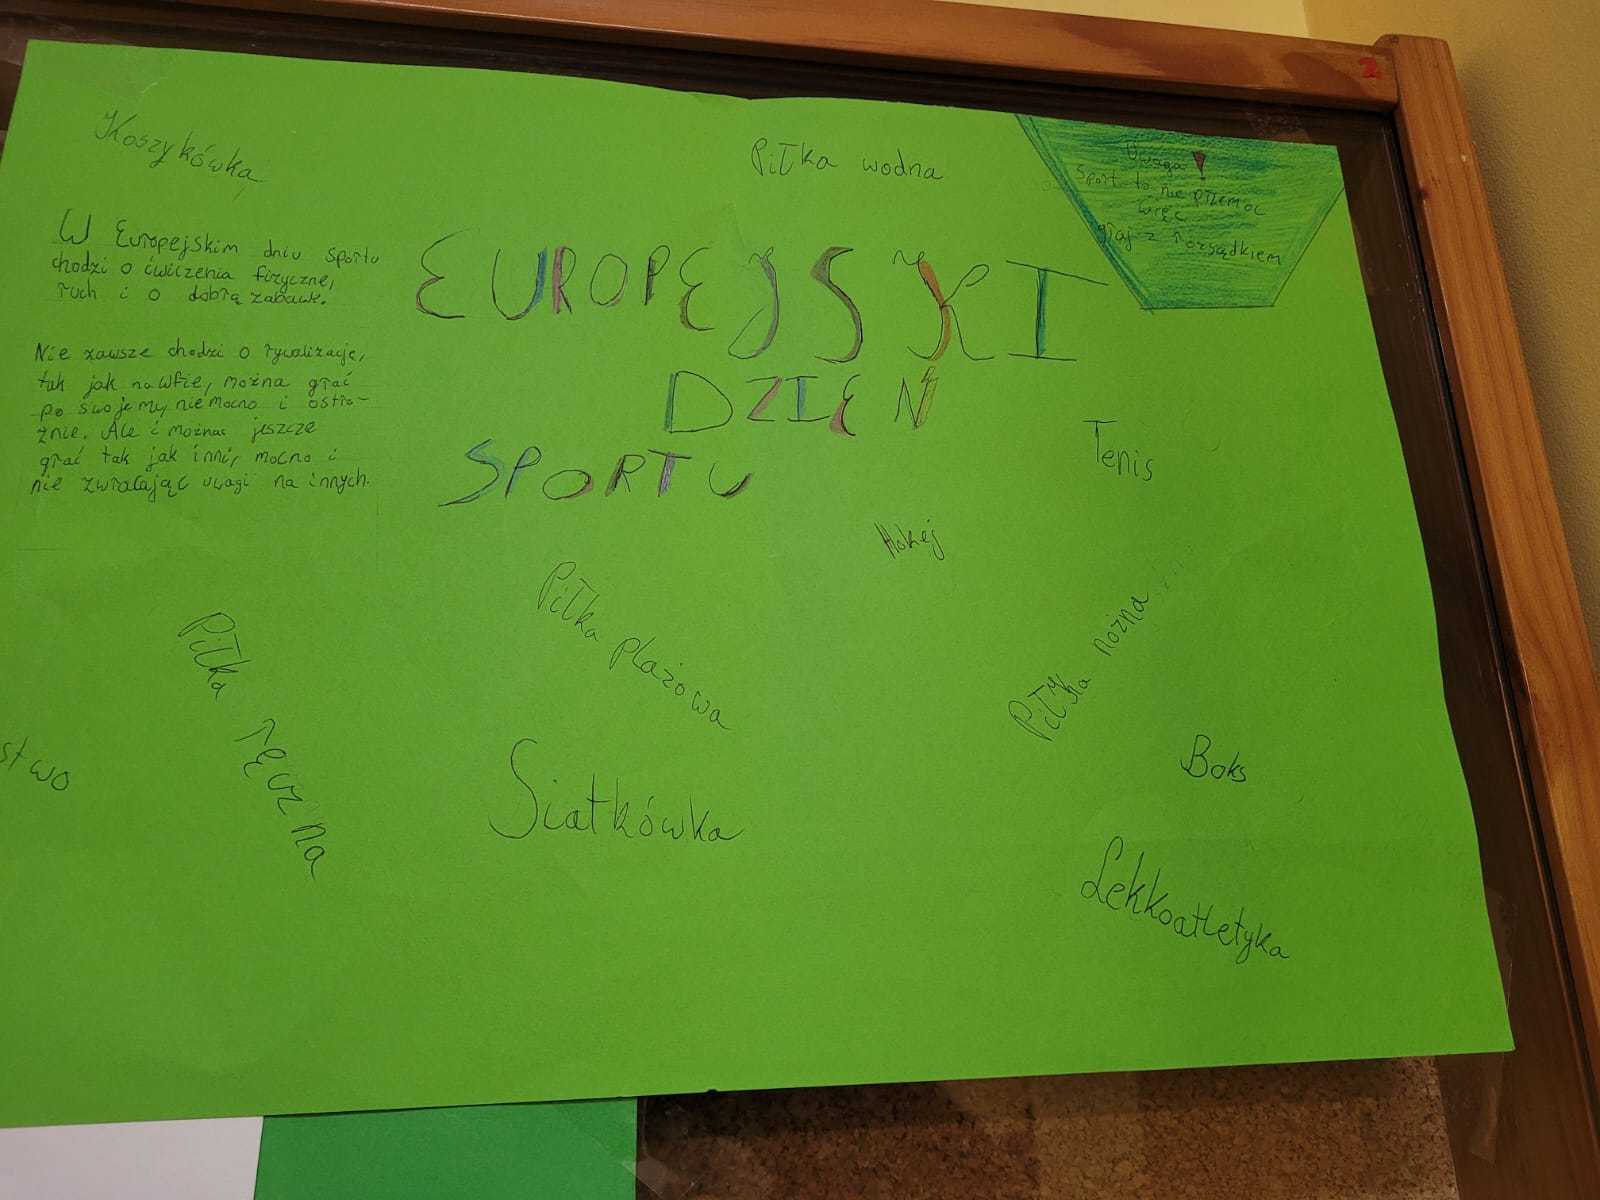 Koszykówka
Piłka wodna
Uwaga!
Sport to nie przemoc
więc
graj z rozsądkiem
W Europejskim dniu sportu
chodzi o ćwiczenia fizyczne,
ruch i o dobrą zabawę.
EUROPEJSKI
DZIEŃ
SPORTU
Nie zawsze chodzi o rywalizację,
tak jak na wfie, można grać
po swojemy niemocno i ostro-
żnie. Ale i można jeszcze
grać tak jak inni, mocno i
nie zwracając uwagi na innych.
Tenis
Hokej
Piłka plażowa
Piłka nożna...
Piłka ręczna
stwo
Siatkówka
Boks
Lekkoatletyka
2